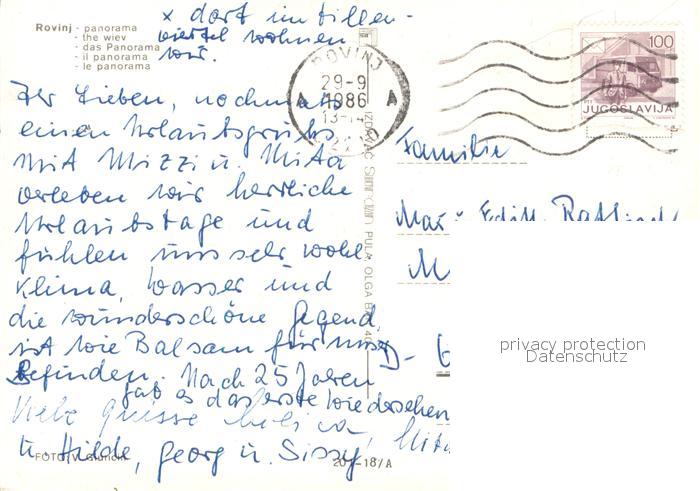 x dort im Villen-
viertel wohnen
wir.
Rovinj - panorama
- the wiev
- das Panorama
- il panorama
- le panorama
ROVINJ
29-9
1986
13-14
A A
100
JUGOSLAVIJA
Ihr Lieben, nochmals
einen Urlaubsgruß.
Mit Mizzi u. Mita
verleben wir herrliche
Urlaubstage und
fühlen uns sehr wohl.
Klima, Wasser und
die wunderschöne Gegend,
ist wie Balsam für unser
Befinden. Nach 25 Jahren
gab es das erste Wiedersehen
Viele Grüsse Mita
u. Hilde, Georg u. Sissy
Familie
M
D-
PULA, OLGA BAN 40
FOTO:
20 -18/A
privacy protection
Datenschutz